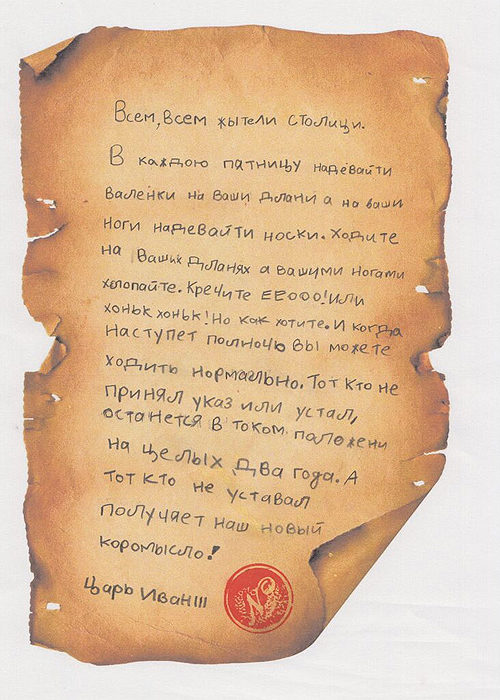 Всем, всем жытели столици.
В каждою пятницу надевайти
валенки на ваши длани а на ваши
ноги надевайти носки. Ходите
на Ваших дланях а вашими ногами
хлопайте. Кречите ЕЕООО! или
хоньк хоньк! Но как хотите. И когда
наступет полночь вы можете
ходить нормально. Тот кто не
принял указ или устал,
останется в током положени
на целых два года. А
тот кто не уставал
получает наш новый
коромысло!
Царь Иван III